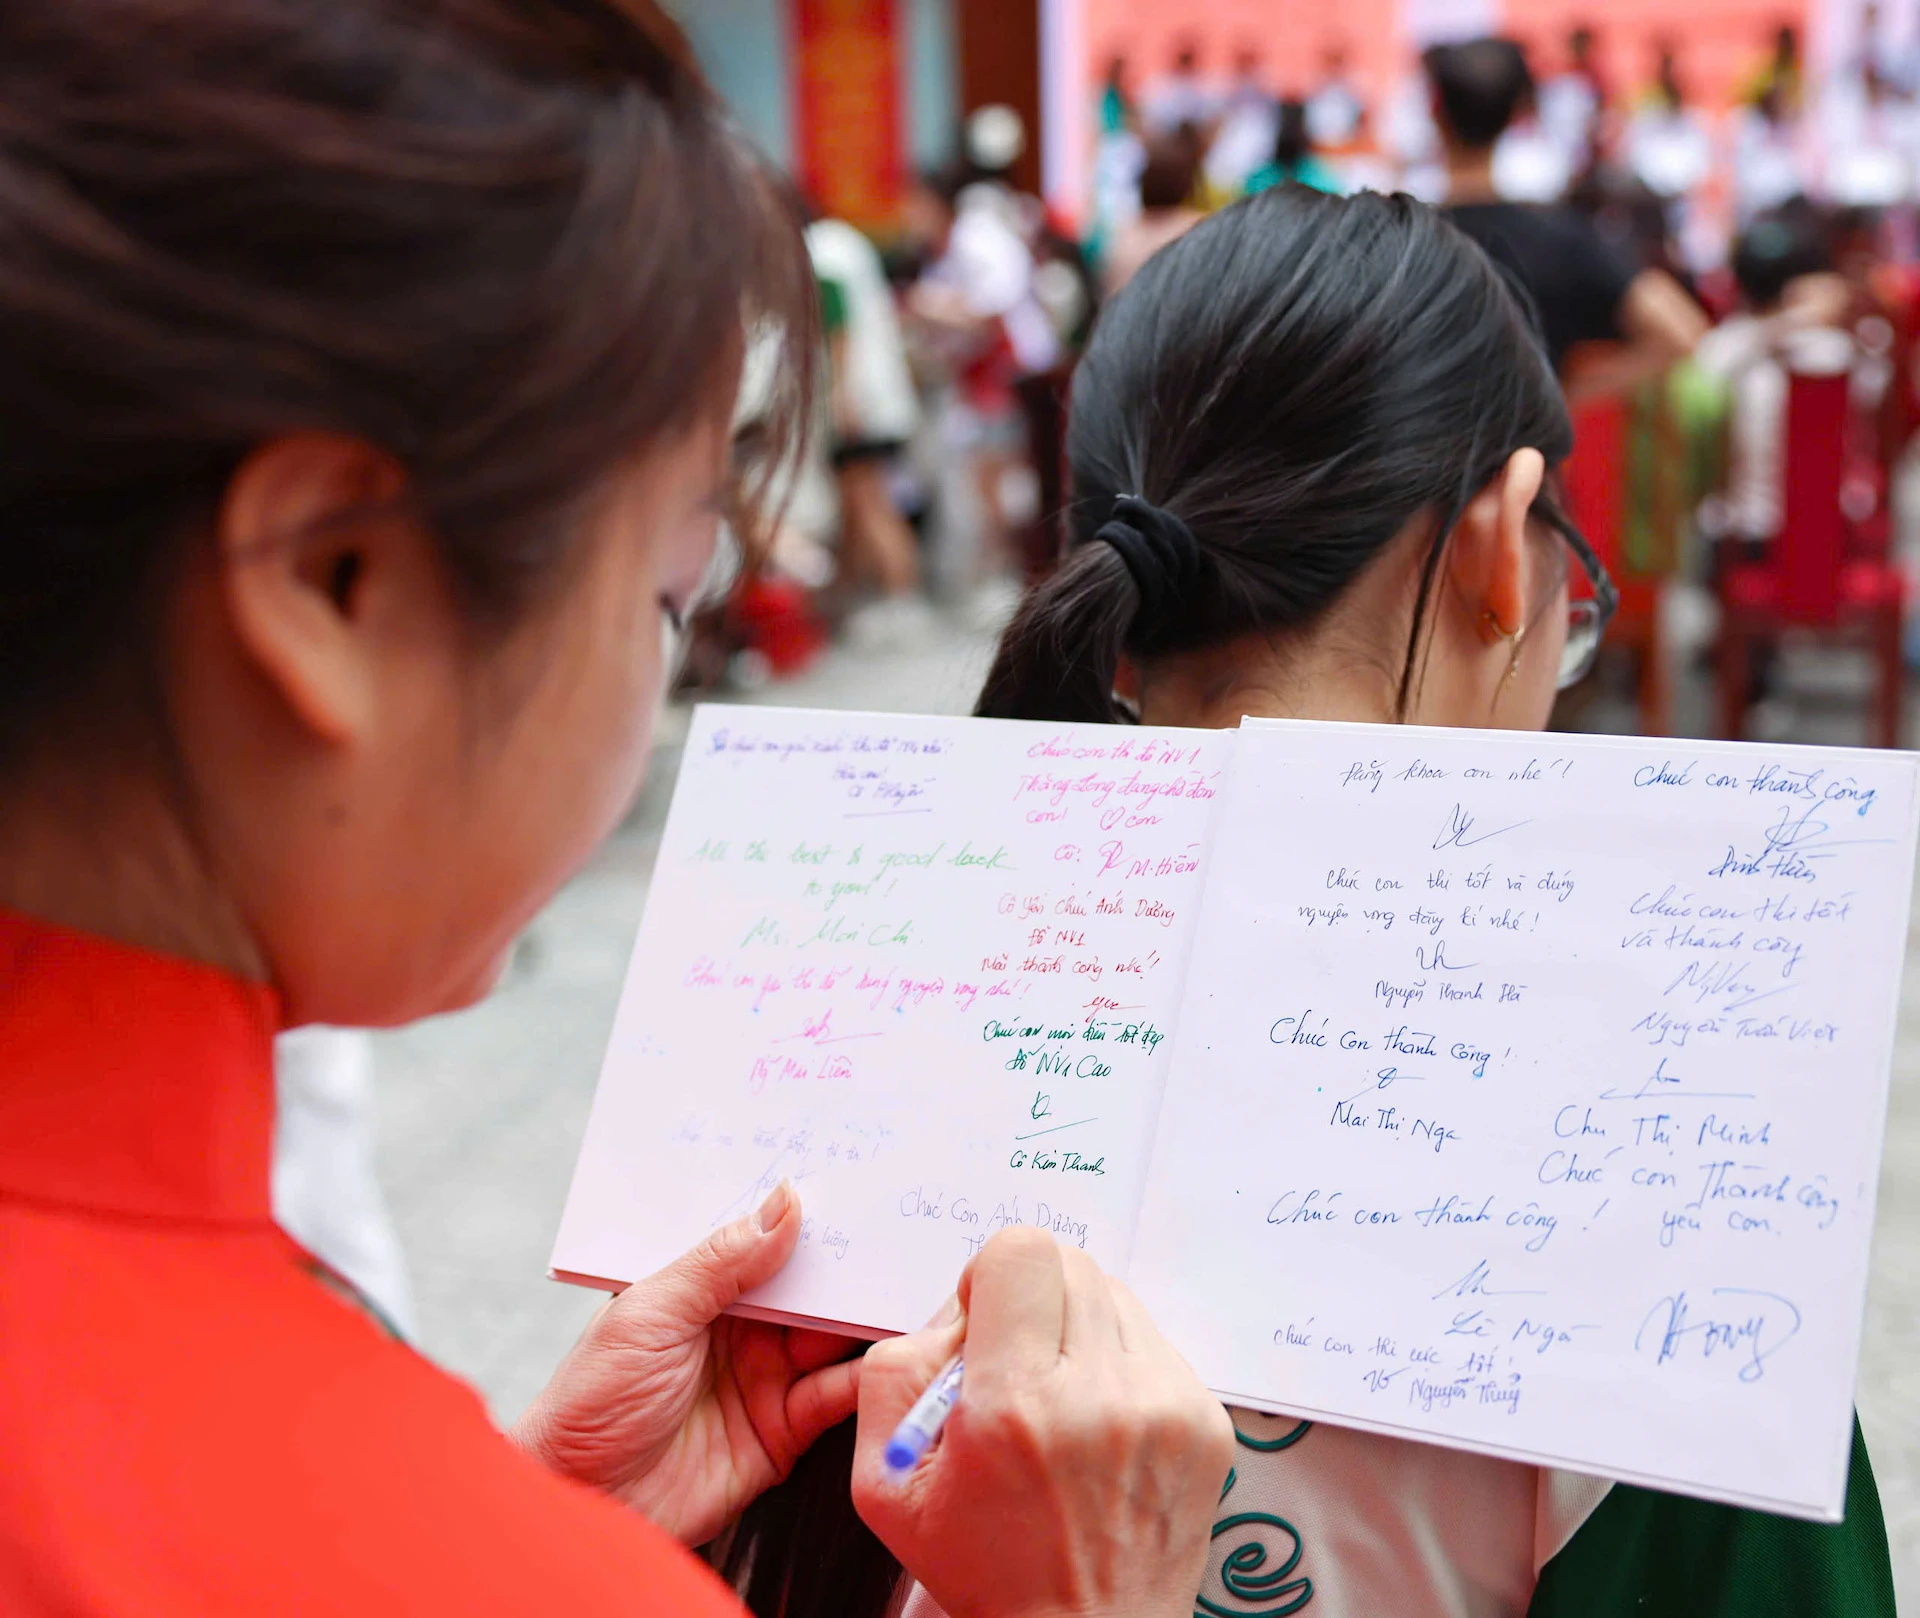 All the best & good luck
to you!
Ms. Mai Chi.
Chúc con gái thi tốt đúng nguyện vọng nhé!
Mai Liên
Chúc con thi đỗ NV1
Thăng Long đang chờ đón
con! ♡ con
Cô: M. Hiền
Cô Yến chúc Ánh Dương
Đỗ NV1
Mãi thành công nhé!
Chúc con mọi điều tốt đẹp
Đỗ NV1 Cao
Cô Kim Thanh
Chúc Con Ánh Dương
Th
Đăng khoa con nhé!
Chúc con thi tốt và đúng
nguyện vọng đăng kí nhé!
Nguyễn Thanh Hà
Chúc Con thành công!
Mai Thị Nga
Chúc con thành công!
Lê Nga
Chúc con thi cực tốt!
Nguyễn Thuý
Chúc con thành công
Chúc con thi tốt
và thành công
Nguyễn Tuấn Việt
Chu Thị Minh
Chúc con Thành công
yêu con.